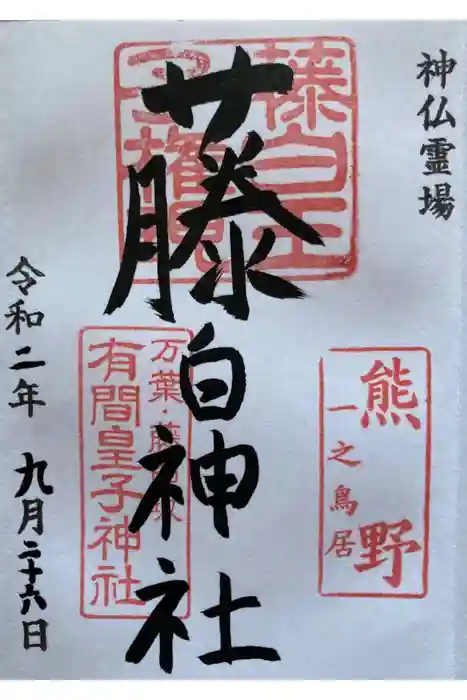 神仏霊場
熊野
一之鳥居
藤白王
子権現
藤白神社
万葉・藤白坂
有間皇子神社
令和二年 九月二十六日